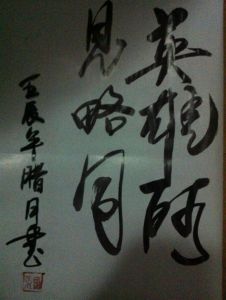 英雄所
見略同
壬辰年腊月書